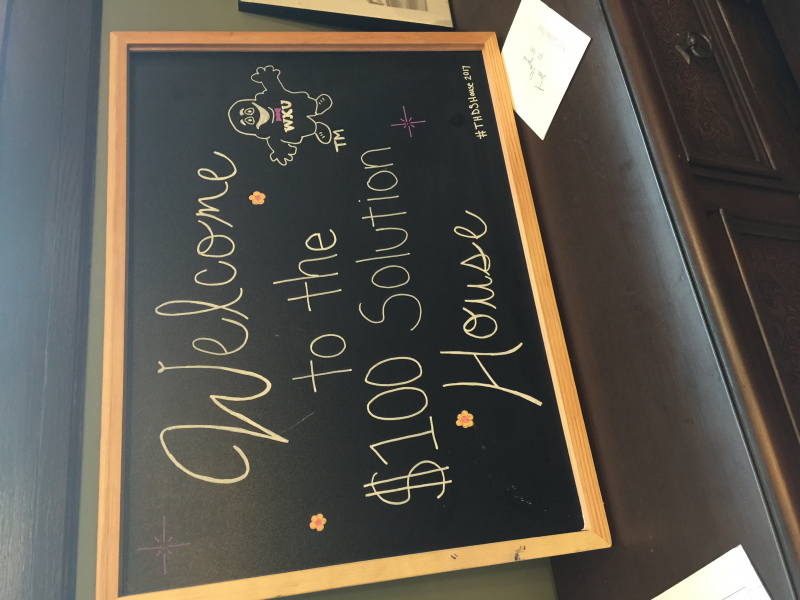 Welcome
to the
$100 Solution
House
WKU
TM
#THDSHouse 2017